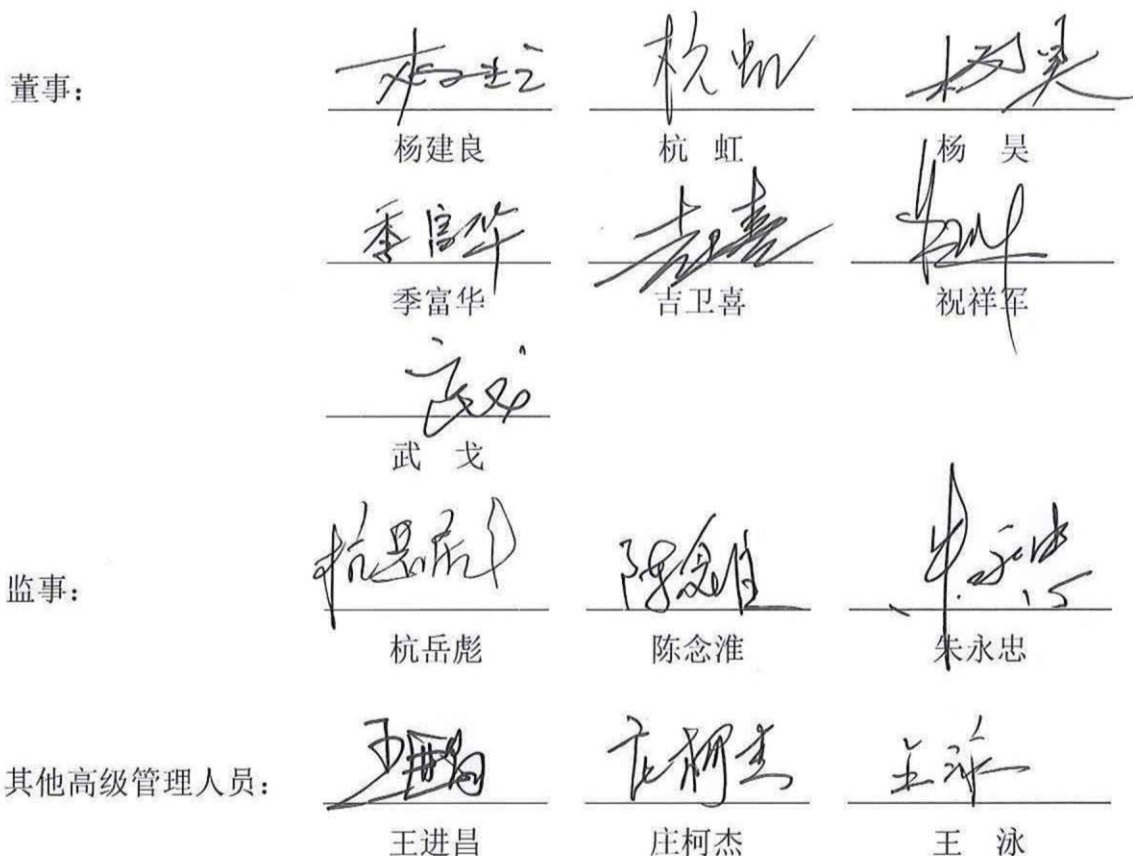 董事：
杨建良 杭 虹 杨 昊
季富华 吉卫喜 祝祥军
武 戈
监事：
杭岳彪 陈念淮 朱永忠
其他高级管理人员：
王进昌 庄柯杰 王 泳